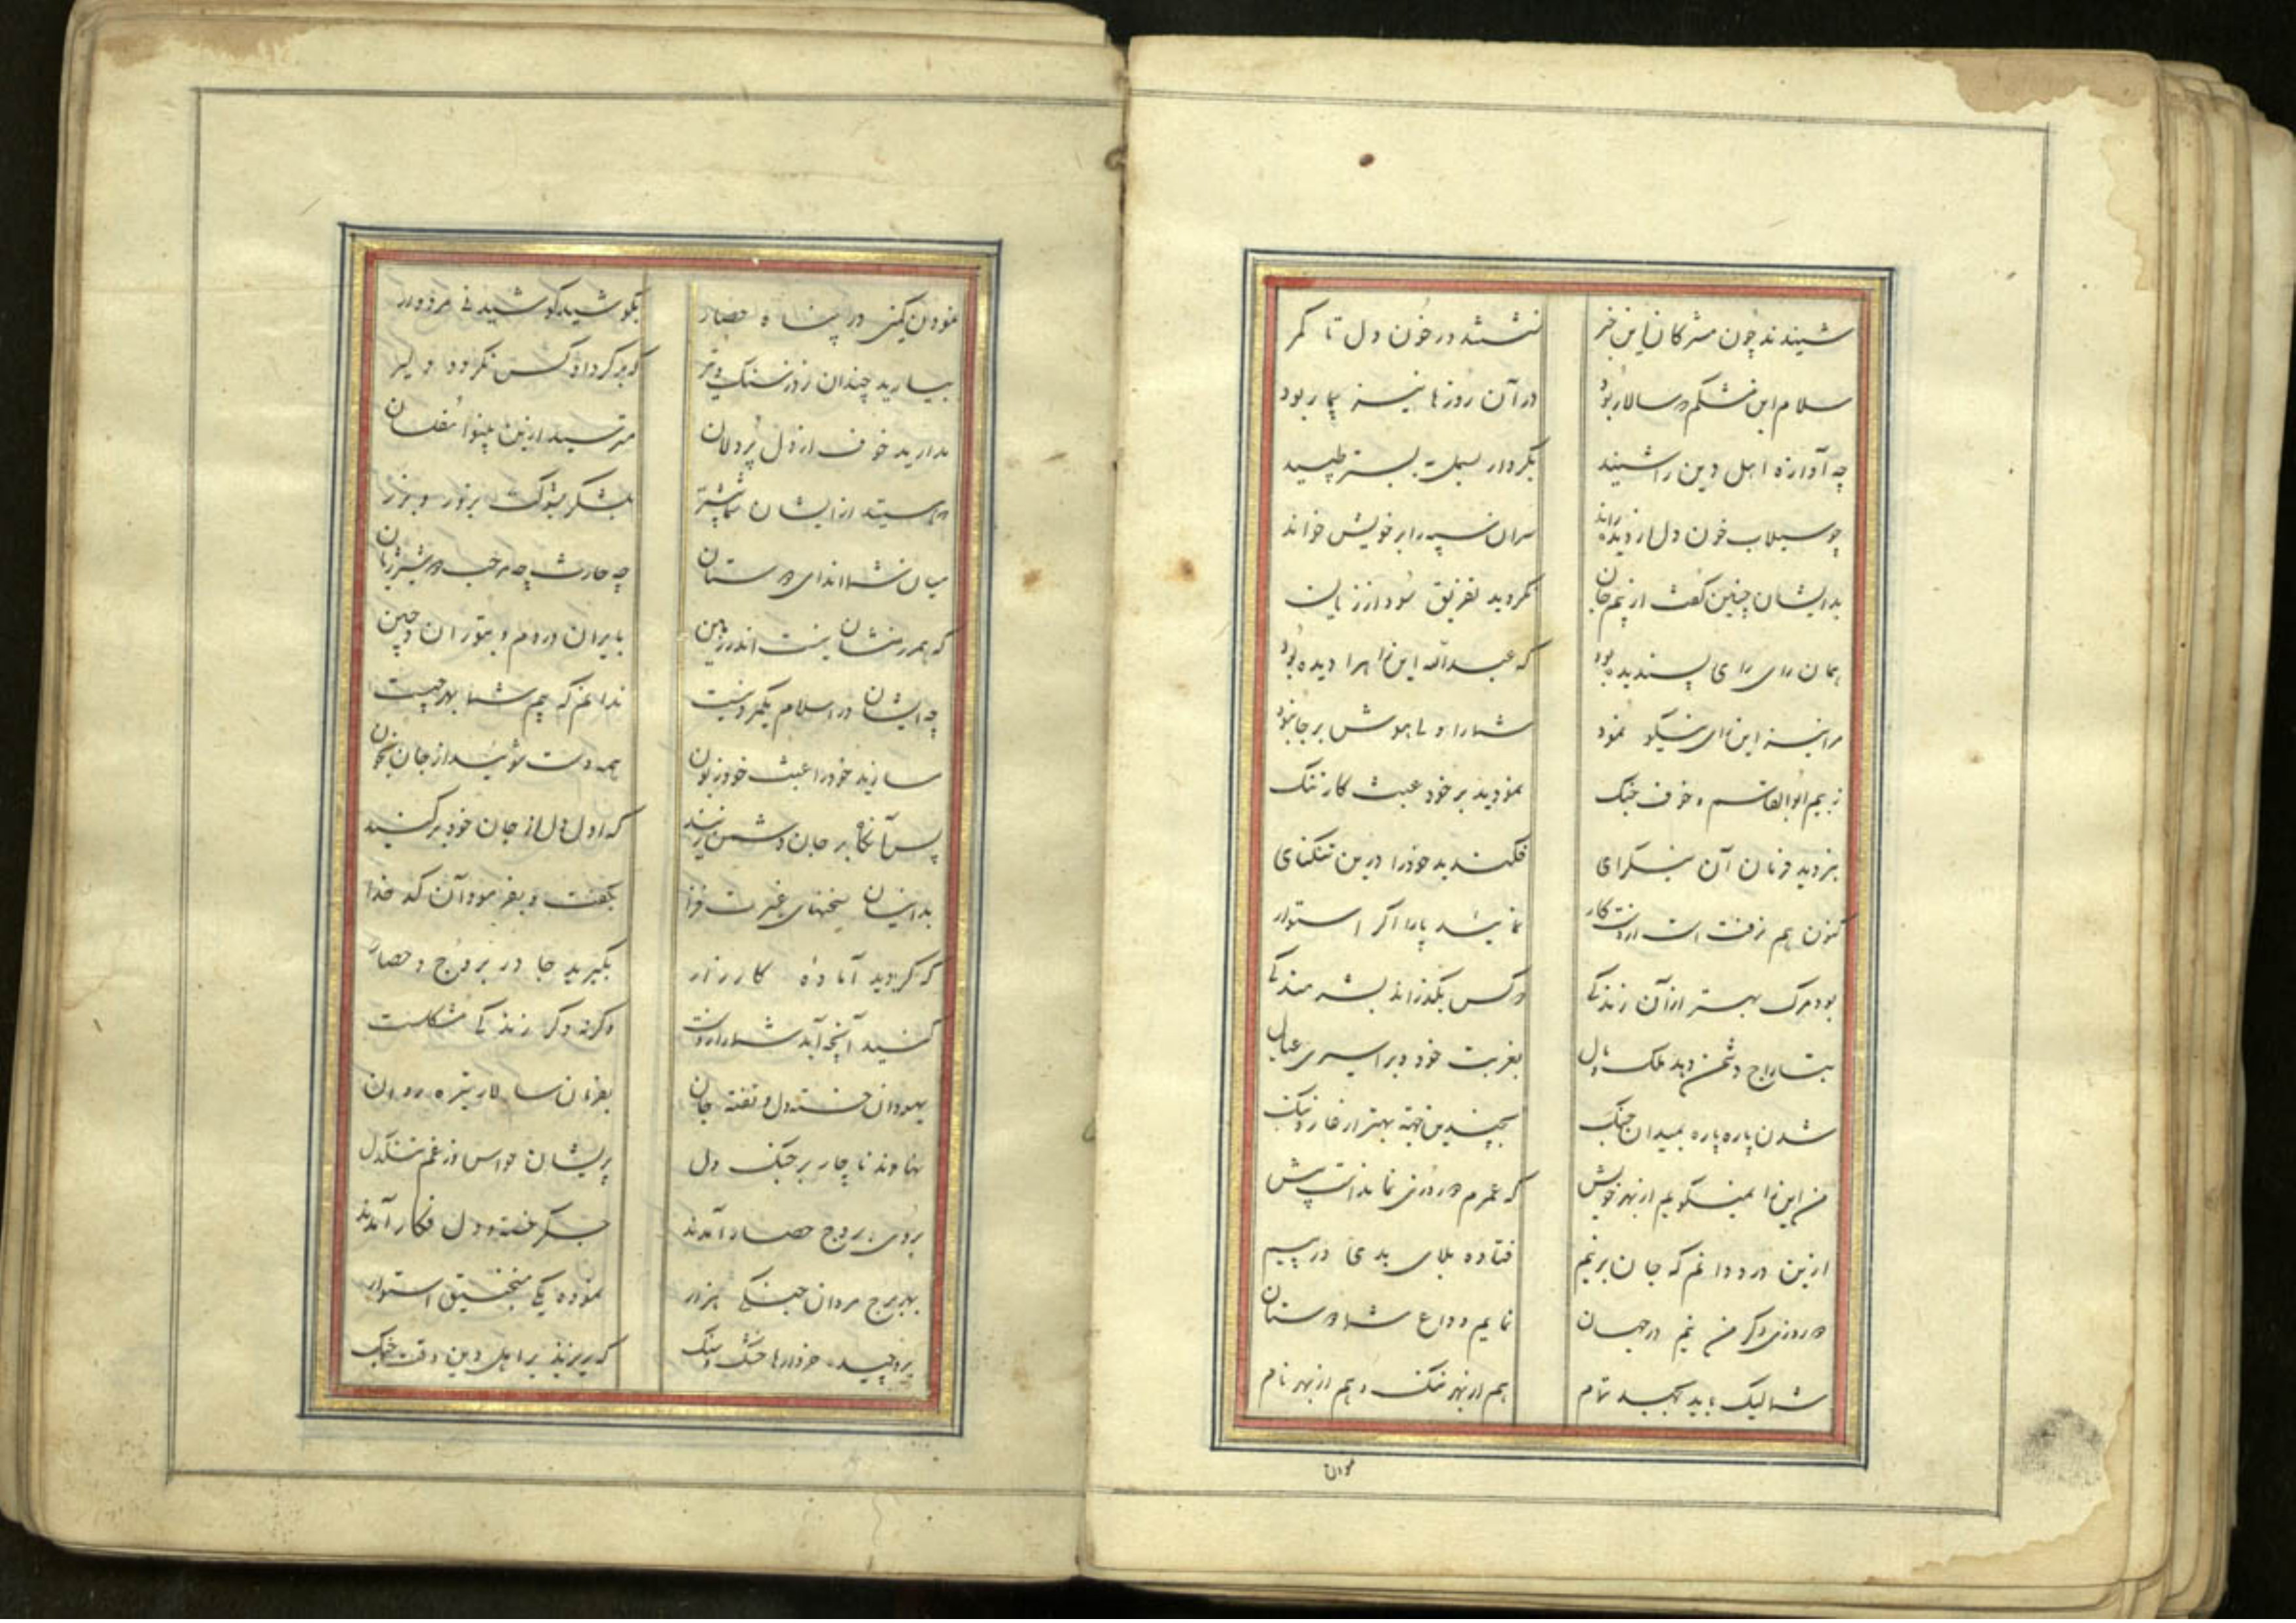 شنیدند چون مشرکان این خبر نشستند در خون دل تا کمر
سلام ابن مشکم که سالار بود در آن روزها نیز بیمار بود
چه آوازه اهل دین را شنید بکردار بسمل به بستر طپید
چو سیلاب خون دل از دیده راند سران سپه را بر خویش خواند
بدیشان چنین گفت از بیم جان نکردید تفریق سود از زیان
همان رای رای پسندیده بود که عبدالله ابن ابی‌را دیده بود
مرا نیز این رای نیکو نمود شما را ولی هوش بر جا نبود
ز بیم ابوالقاسم و خوف جنک نمودید بر خود عبث کار تنک
نبردید فرمان آن نیکرای فکندید خود را درین تنکنای
کنون هم نرفت است از دست کار نمائید پا را اگر استوار
بود مرک بهتر از آن زندکی که کس بگذراند بشرمندکی
بتاراج دشمن دهد ملک و مال بغربت خود و بر اسیری عیال
شدن پاره پاره بمیدان جنک بچندین جهة بهتر از عار و ننک
من این را نمیگویم از بهر خویش که عمرم دو روزی نماند است پیش
ازین درد دانم که جان برنیم فتاده بلای بدی در پیم
دو روزی دکر من نیم در جهان نمایم وداع شما دوستان
شما لیک باید بجهد تمام هم از بهر ننک و هم از بهر نام
نمودن کمی در پناه حصار بکوشید کوشیدنی مردوار
ببارید چندان زور سنک و تیر که برکرد او کس نکردد دلیر
مدارید خوف از دل پردلان مترسید ازین بینوا مفلسان
که هستید از ایشان شما پیشتر بلشکر بشوکت بزور و بزر
میان شما اند ای دوستان چه حارث چه مرحب دو شیر ژیان
که همرزمشان نیست اندر زمین بایران و روم و بتوران و چین
چه ایشان در اسلام یکمرد نیست ندانم که بیم شما بهر چیست
سازید خود را عبث خود زبون همه دست شوئید از جان کنون
که اول دل از جان خود برکنید پس آنکاه بر جان دشمن زنید
بدینسان سخنهای غیرت فزا بگفت و بفرمود آن کدخدا
که کردید آماده کارزار بگیرید جا در بروج و حصار
کنید آنچه آید شما را ز دست وکرنه دکر زندکی مشکلست
یهودان خسته دل و تفته جان بفرمان سالار تیره روان
نهادند ناچار بر جنک دل پریشان حواس و ز غم تنکدل
بروی بروج حصار آمدند جکر خسته و دل فکار آمدند
بهر برج مردان جنکی هزار نموده یکی منجنیق استوار
بر چید خروارها خشت و سنک که ریزند بر اهل دین وقت جنک